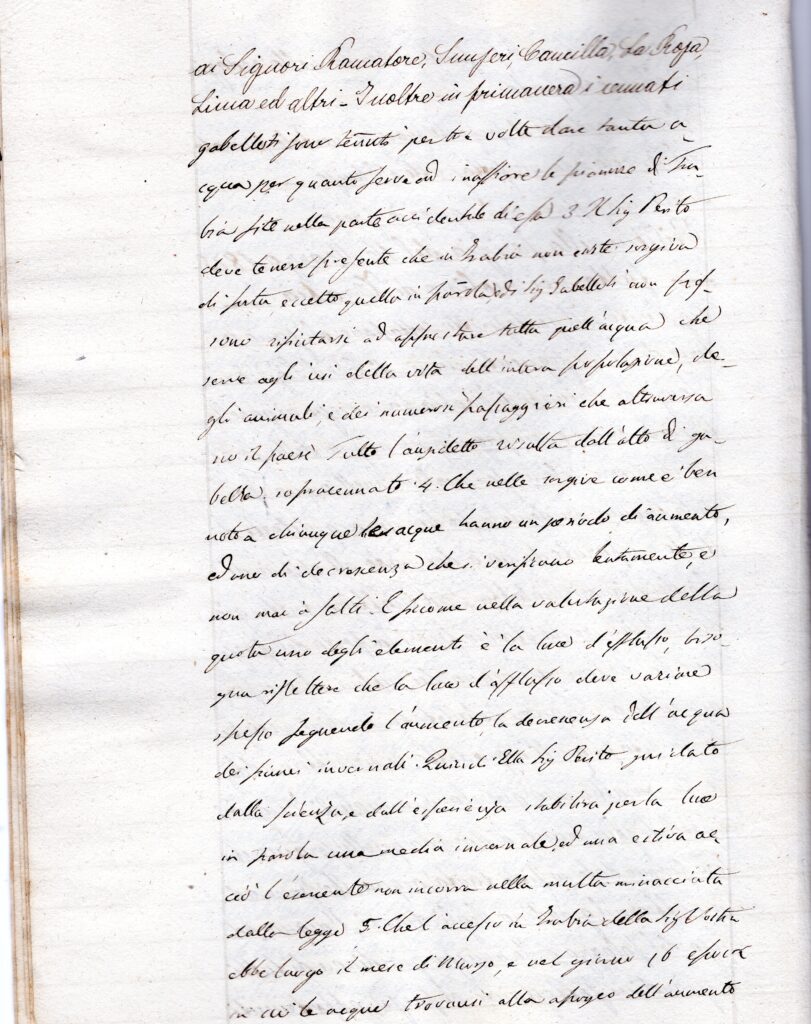 ai Signori Ramatore, Sunseri, Cancilla, La Rosa,
Lima ed altri - Inoltre in primavera i cennati
gabelloti sono tenuti per tre volte dare tanta a-
cqua per quanto serve ad inaffiare le pianure di Tra-
bia site nella parte occidentale di essa 3. Il Sig Perito
deve tenere presente che in Trabia non esiste sorgiva
di sorta, eccetto quella in parola, di Sig Gabelloti non pos-
sono rifiutarsi ad apprestare tutta quell'acqua che
serve agli usi della vita dell'intera popolazione, de-
gli animali, e dei numerosi passaggieri che attraversa
no il paese Tutto l'anzidetto risulta dall'atto di ga-
bella sopracennato 4. Che nelle sorgive come è ben
noto a chiunque le acque hanno un periodo di aumento,
ed uno di decrescenza che si verificano lentamente, e
non mai a salti. E siccome nella valutazione della
quota uno degli elementi è la luce d'efflusso, biso-
gna riflettere che la luce d'efflusso deve variare
spesso seguendo l'aumento, la decrescenza dell'acqua
dei fiumi invernali. Quindi Ella Sig Perito guidato
dalla scienza, e dall'esperienza stabilirà per la luce
in parola una media invernale, ed una estiva ac
ciò l'esercente non incorra nella multa minacciata
dalla legge 5. Che l'accesso in Trabia della Sig Vostra
ebbe luogo il mese di Marzo, e nel giorno 16 epoca
in cui le acque trovansi alla apogeo dell'aumento